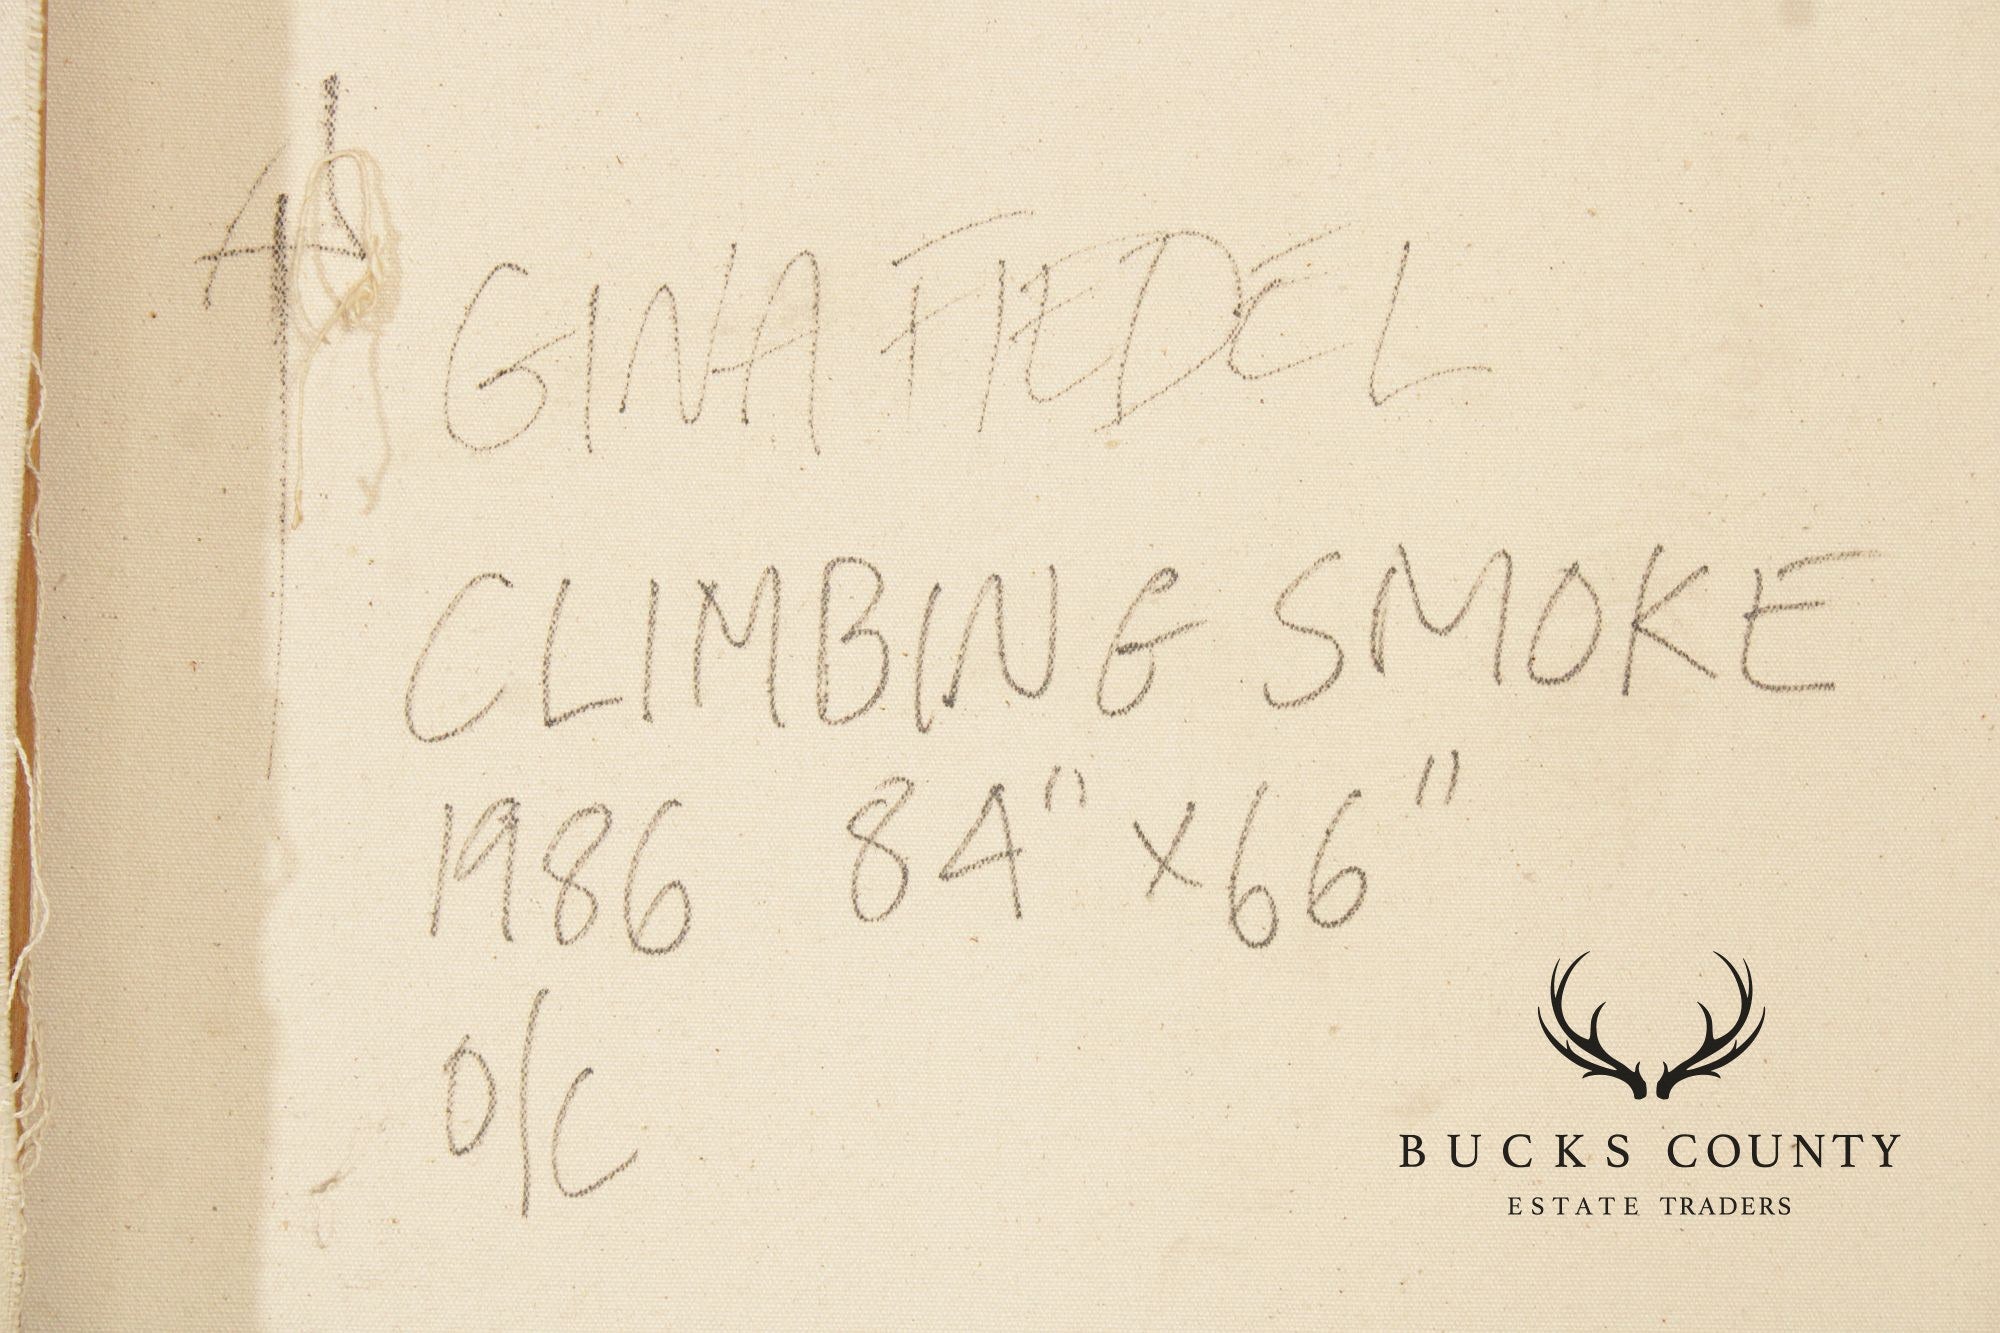 GINA FIEDEL
CLIMBING SMOKE
1986 84" x 66"
O/C
BUCKS COUNTY
ESTATE TRADERS